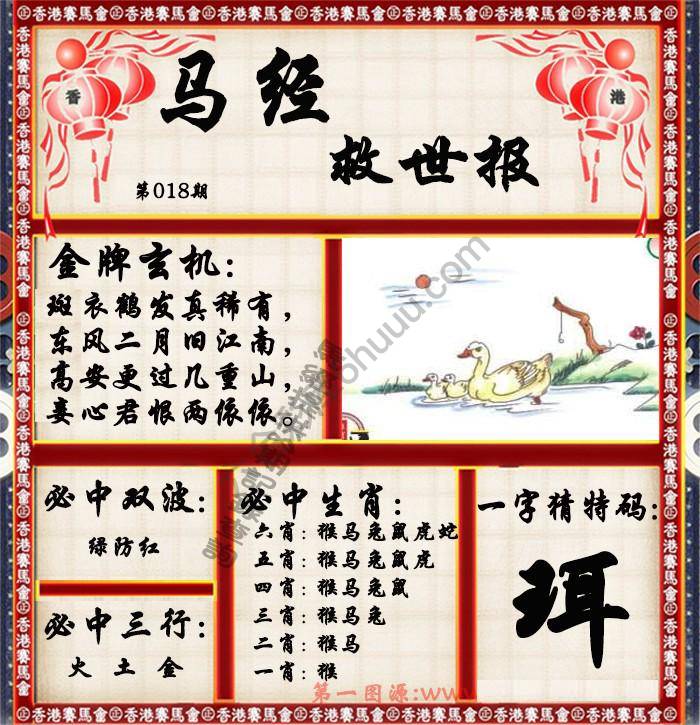 香港賽馬會
香
港
马经
救世报
第018期
金牌玄机:
斑衣鹤发真稀有，
东风二月旧江南，
高安更过几重山，
妾心君恨两依依。
必中双波:
绿防红
必中三行:
火 土 金
必中生肖:
六肖: 猴马兔鼠虎蛇
五肖: 猴马兔鼠虎
四肖: 猴马兔鼠
三肖: 猴马兔
二肖: 猴马
一肖: 猴
一字猜特码:
珥
第一图源:www